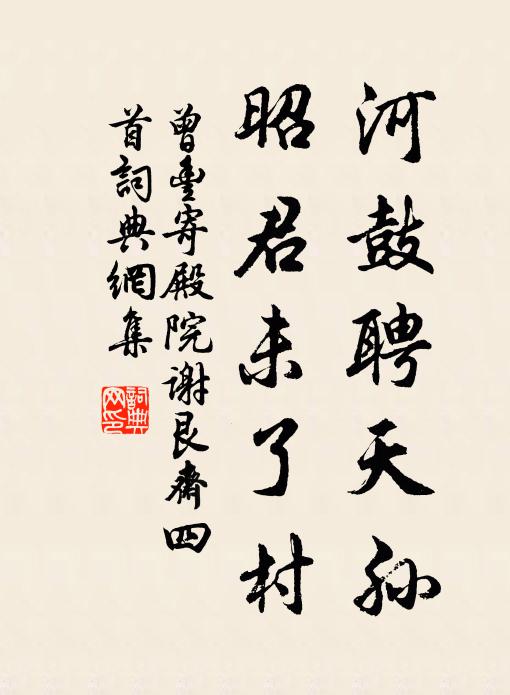 河鼓聘天孙
昭君未了村
曾豊寄殿院謝艮齋四
首詞典網集
詞典
网印